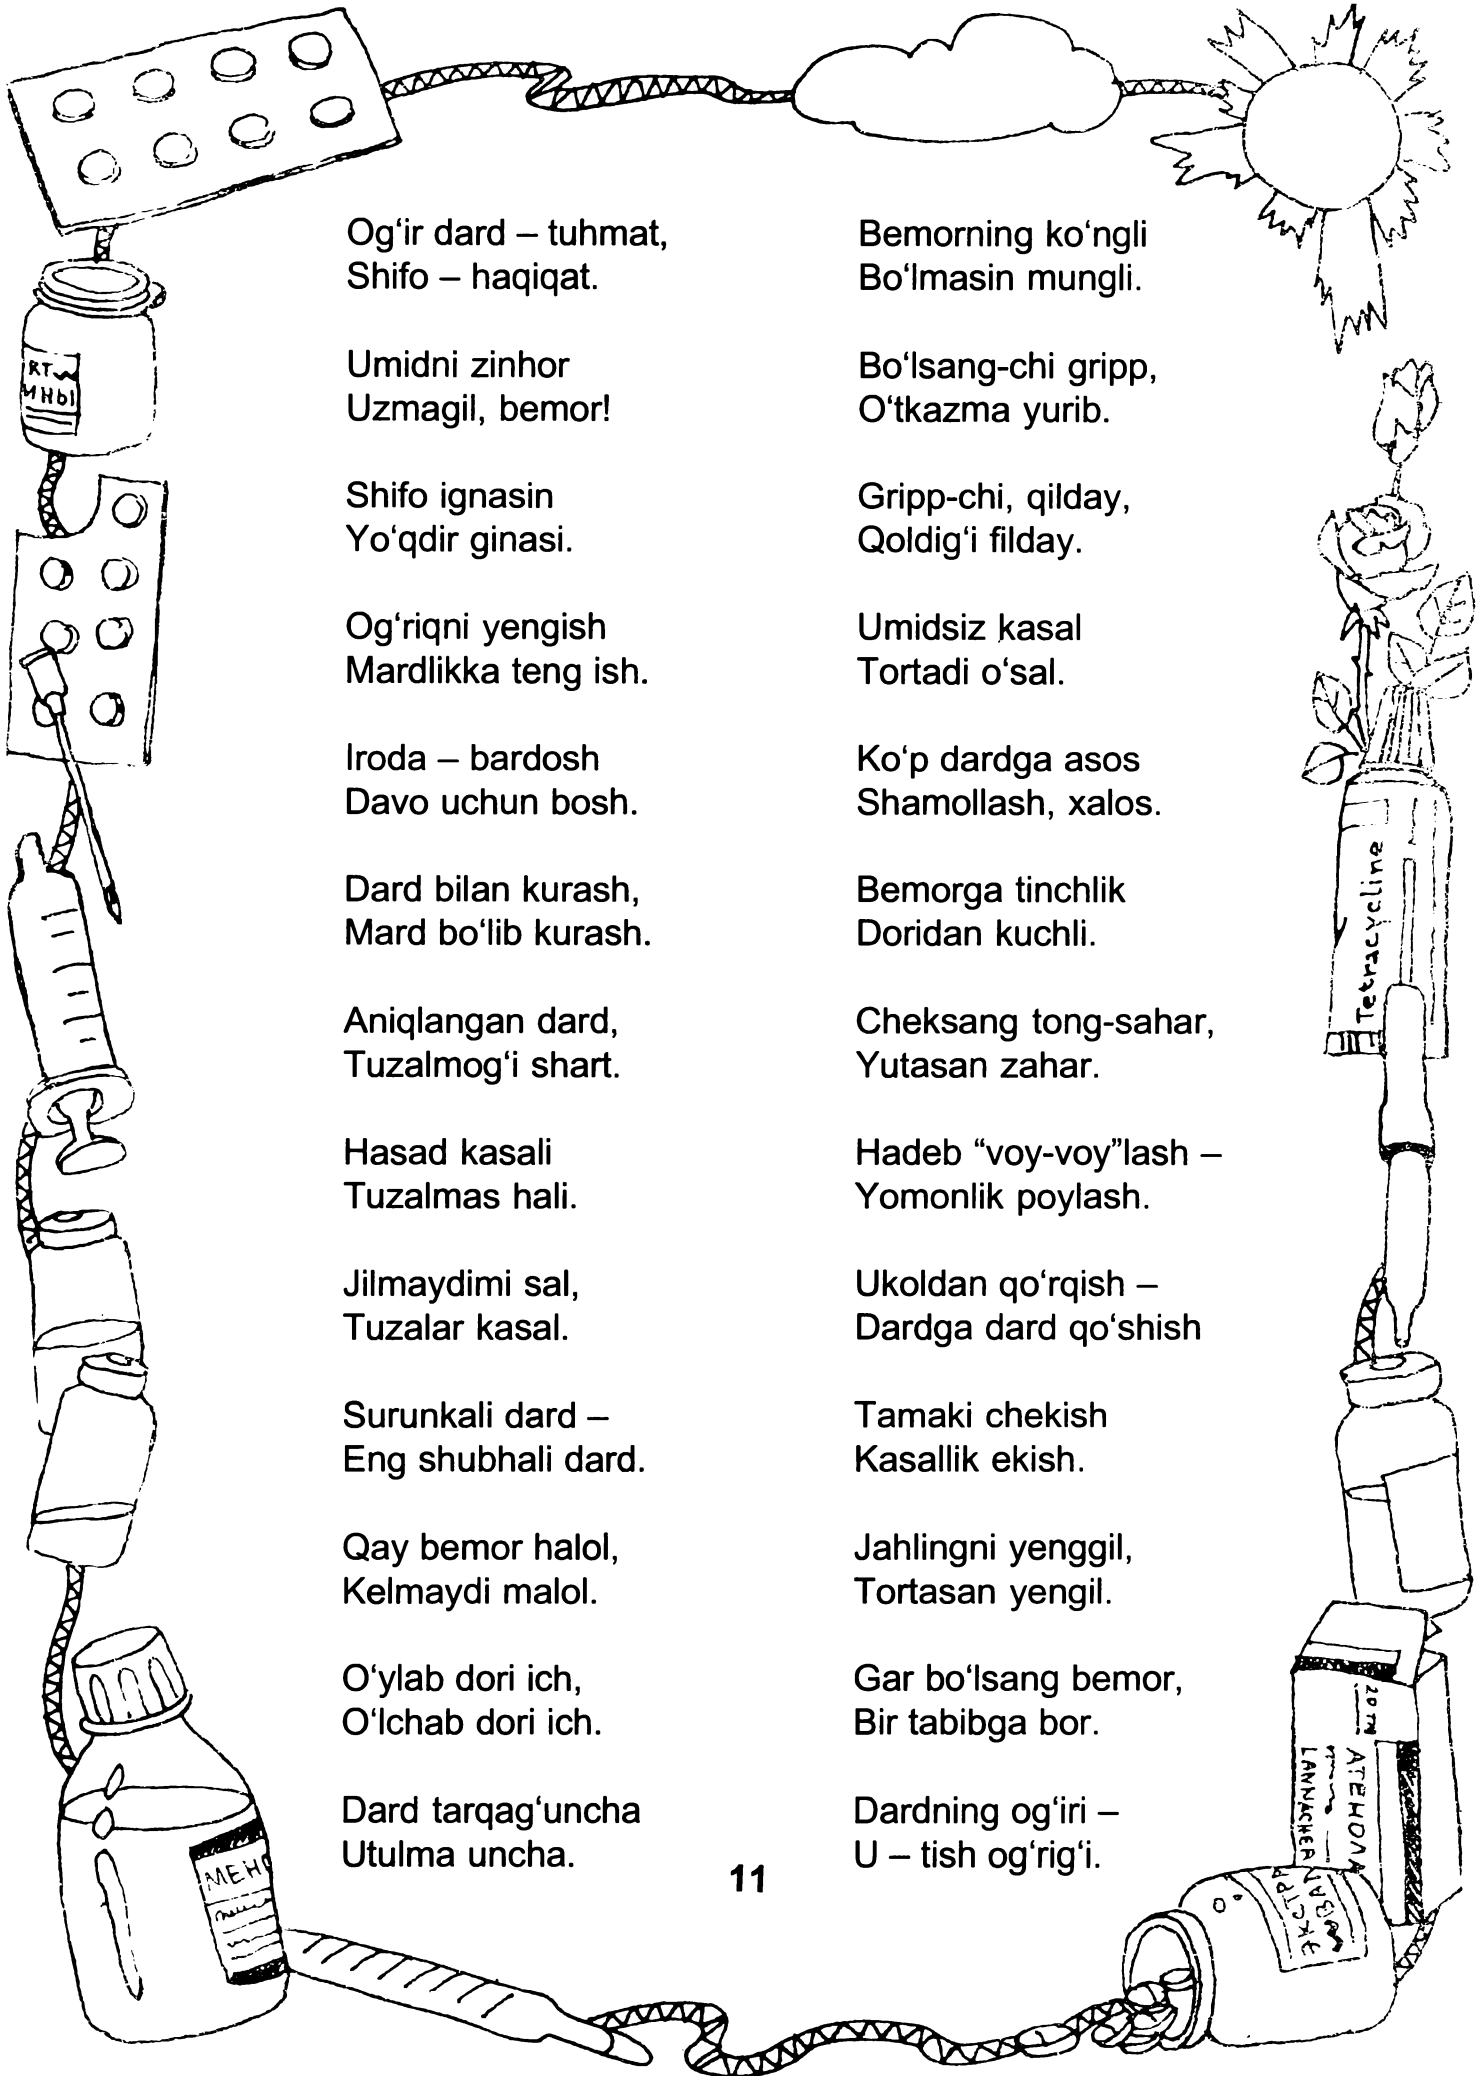 Og‘ir dard – tuhmat,
Shifo – haqiqat.
Umidni zinhor
Uzmagil, bemor!
Shifo ignasin
Yo‘qdir ginasi.
Og‘riqni yengish
Mardlikka teng ish.
Iroda – bardosh
Davo uchun bosh.
Dard bilan kurash,
Mard bo‘lib kurash.
Aniqlangan dard,
Tuzalmog‘i shart.
Hasad kasali
Tuzalmas hali.
Jilmaydimi sal,
Tuzalar kasal.
Surunkali dard –
Eng shubhali dard.
Qay bemor halol,
Kelmaydi malol.
O‘ylab dori ich,
O‘lchab dori ich.
Dard tarqag‘uncha
Utulma uncha.
Bemorning ko‘ngli
Bo‘lmasin mungli.
Bo‘lsang-chi gripp,
O‘tkazma yurib.
Gripp-chi, qilday,
Qoldig‘i filday.
Umidsiz kasal
Tortadi o‘sal.
Ko‘p dardga asos
Shamollash, xalos.
Bemorga tinchlik
Doridan kuchli.
Cheksang tong-sahar,
Yutasan zahar.
Hadeb “voy-voy”lash –
Yomonlik poylash.
Ukoldan qo‘rqish –
Dardga dard qo‘shish
Tamaki chekish
Kasallik ekish.
Jahlingni yenggil,
Tortasan yengil.
Gar bo‘lsang bemor,
Bir tabibga bor.
Dardning og‘iri –
U – tish og‘rig‘i.
11
RT
ИНЫ
МЕНО
Tetracycline
АТЕНОЛА
LANNACHER
ЭКСТРА